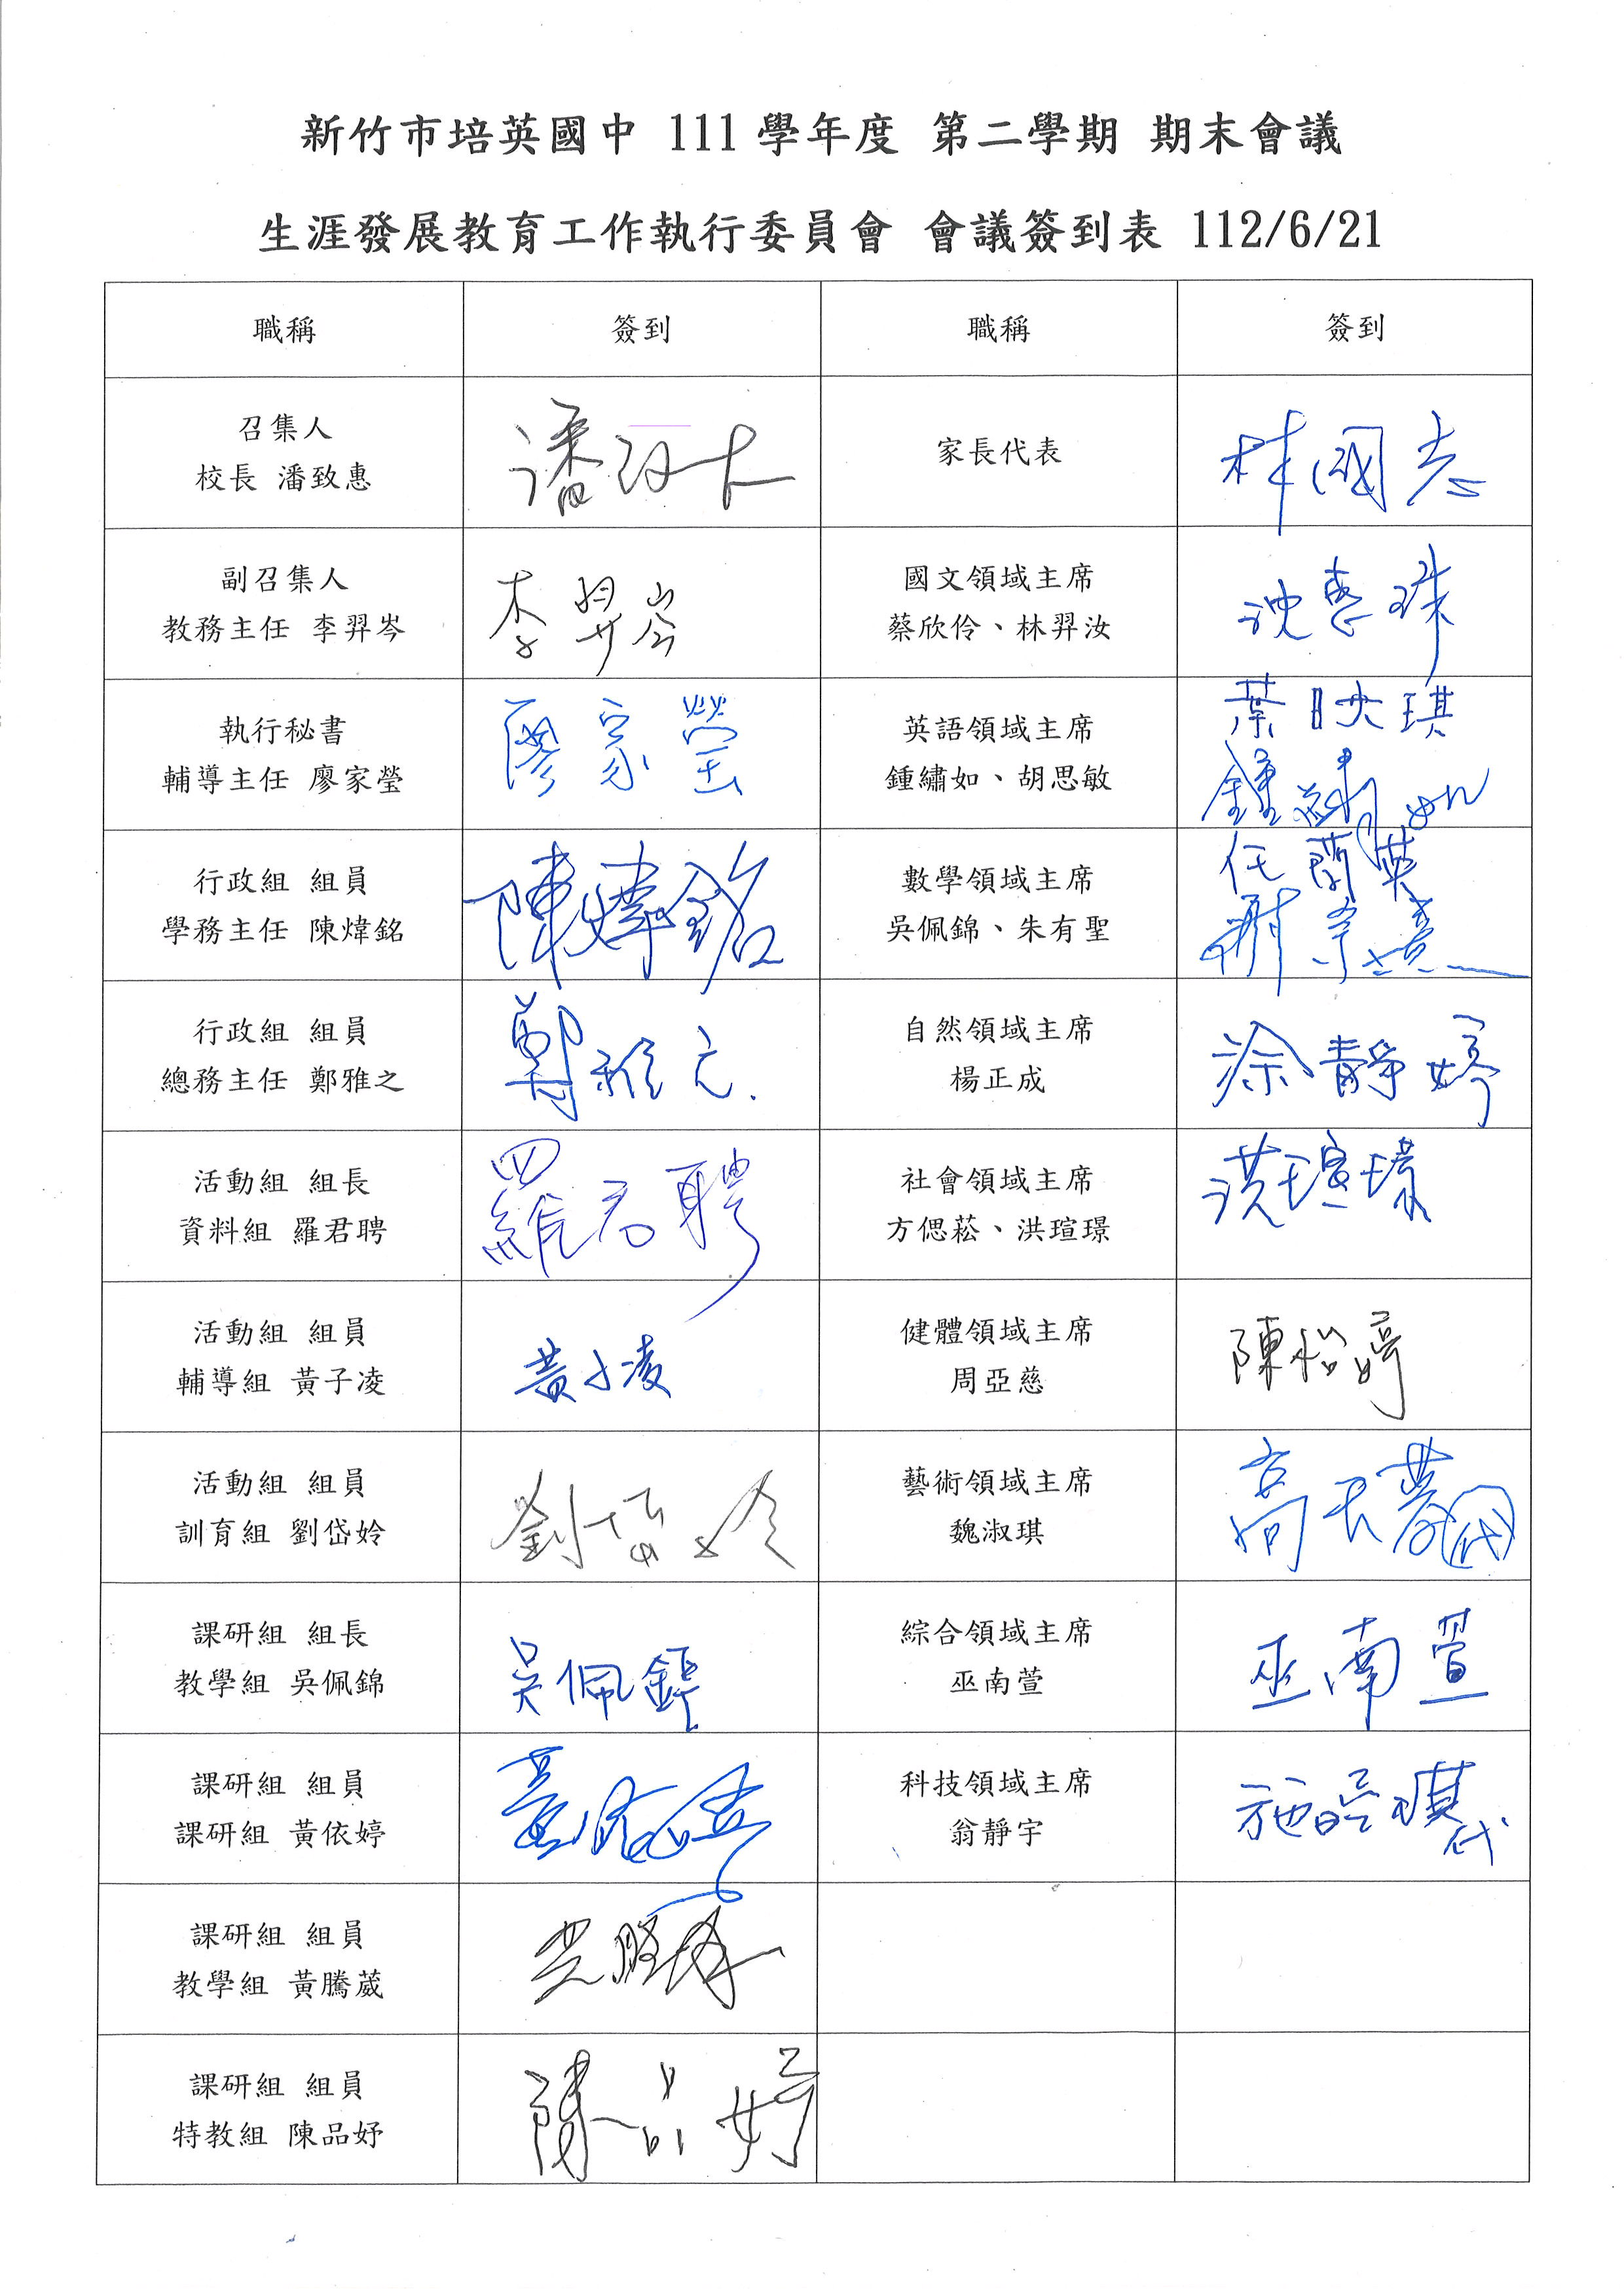 新竹市培英國中 111 學年度 第二學期 期末會議
生涯發展教育工作執行委員會 會議簽到表 112/6/21
職稱 簽到 職稱 簽到
召集人
校長 潘致惠
潘致
家長代表
林國志
副召集人
教務主任 李羿岑
李羿岑
國文領域主席
蔡欣伶、林羿汝
沈惠珠
執行秘書
輔導主任 廖家瑩
廖家瑩
英語領域主席
鍾繡如、胡思敏
葉映琪
鍾繡如
行政組 組員
學務主任 陳煒銘
陳煒銘
數學領域主席
吳佩錦、朱有聖
任蘭英
謝
行政組 組員
總務主任 鄭雅之
鄭雅之
自然領域主席
楊正成
涂靜婷
活動組 組長
資料組 羅君聘
羅君聘
社會領域主席
方偲菘、洪瑄璟
洪瑄璟
活動組 組員
輔導組 黃子凌
黃子凌
健體領域主席
周亞慈
陳怡婷
活動組 組員
訓育組 劉岱姈
劉岱姈
藝術領域主席
魏淑琪
高 代
課研組 組長
教學組 吳佩錦
吳佩錦
綜合領域主席
巫南萱
巫南萱
課研組 組員
課研組 黃依婷
黃依婷
科技領域主席
翁靜宇
施 琪代
課研組 組員
教學組 黃騰葳
黃騰葳
課研組 組員
特教組 陳品妤
陳品妤